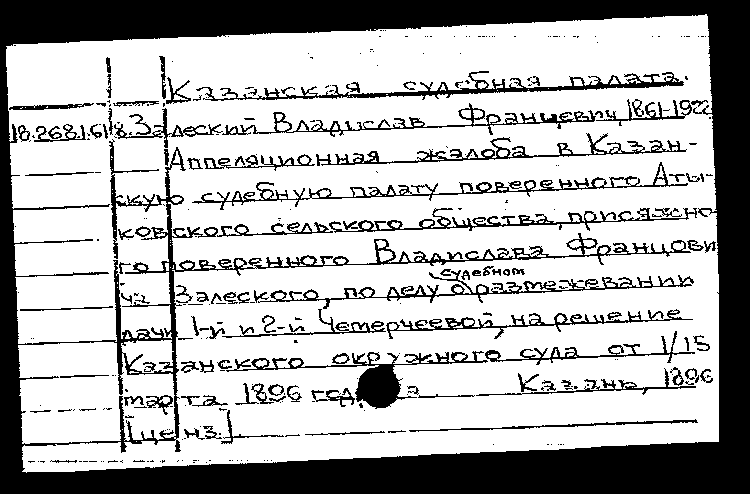 Казанская судебная палата.
18.268.1.618. Залеский Владислав Францевич, 1861-1922
Аппеляционная жалоба в Казан-
скую судебную палату поверенного Аты-
ковского сельского общества, присяжно-
го поверенного Владислава Францови
ча Залеского, по делу о судебном размежевании
дачи 1-й и 2-й Четерчеевой, на решение
Казанского окружного суда от 1/15
марта 1896 года. Казань, 1896
[ценз.].